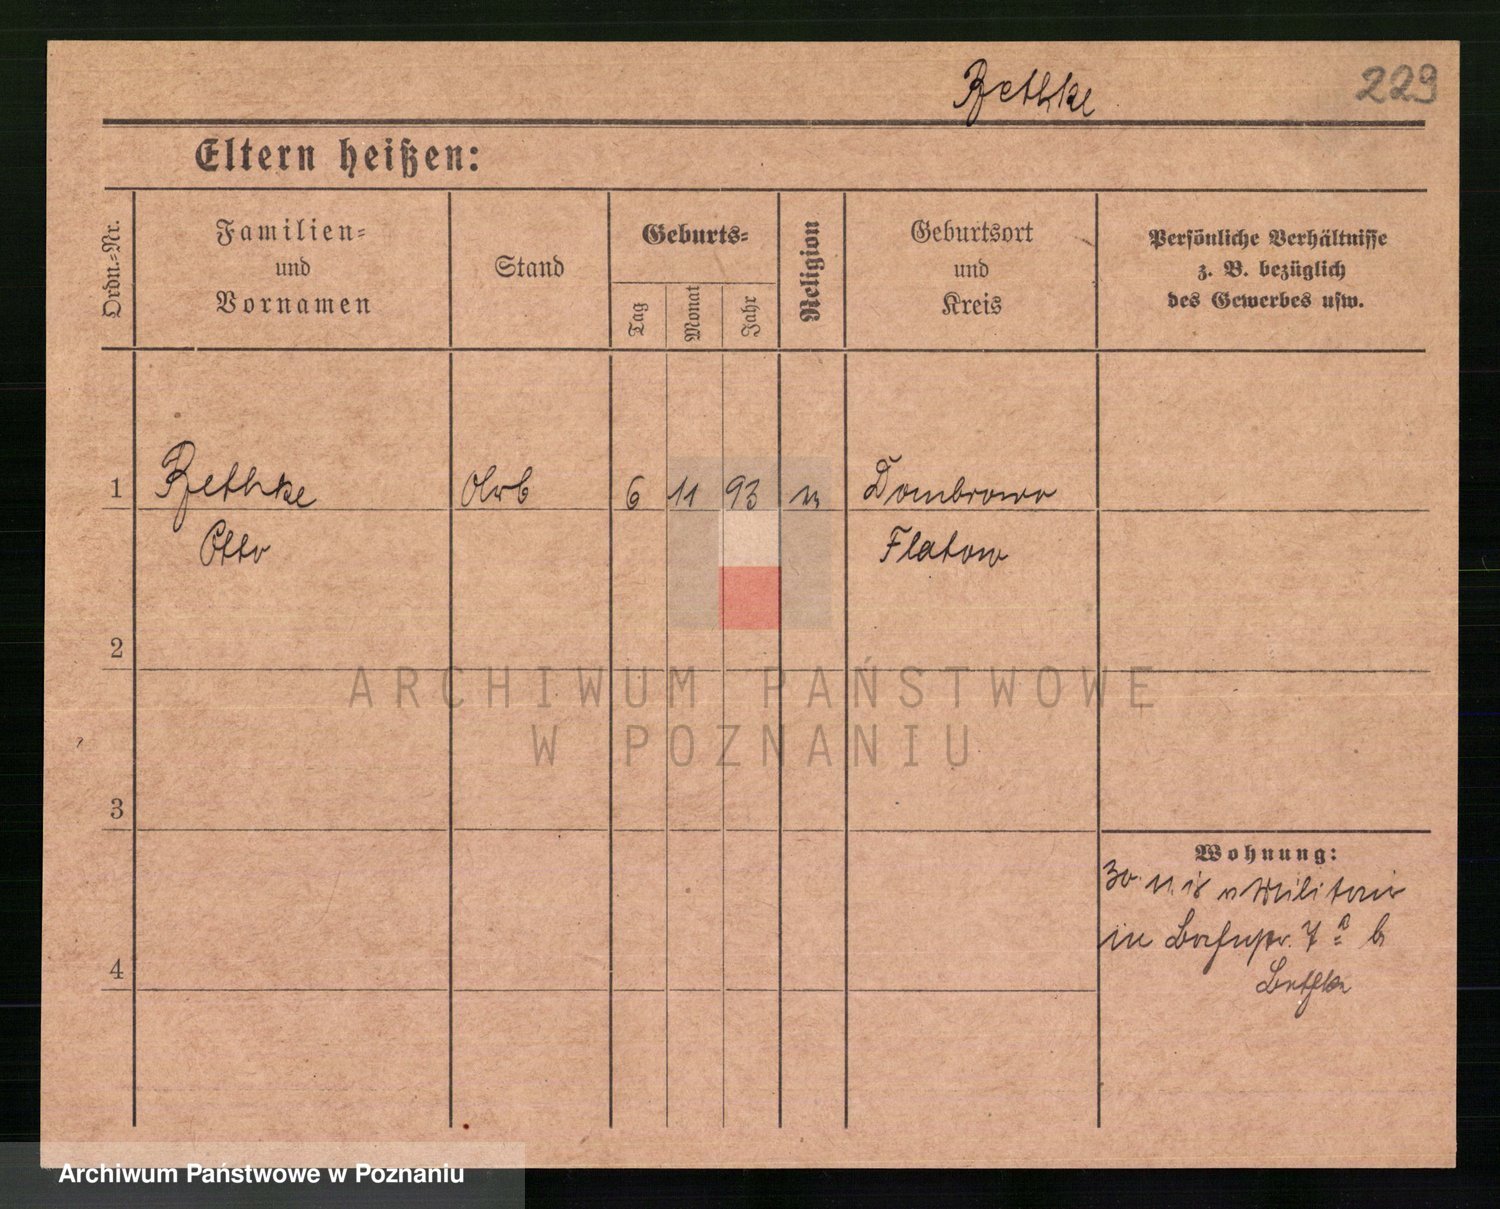 Bethke
229
Eltern heißen:
Ordn.-Nr.
Familien-
und
Vornamen
Stand
Geburts-
Tag
Monat
Jahr
Religion
Geburtsort
und
Kreis
Persönliche Verhältnisse
z. B. bezüglich
des Gewerbes usw.
1
Bethke
Arb
6
11
93
Dombrowo
Otto
Flatow
2
ARCHIWUM PAŃSTWOWE
W POZNANIU
3
Wohnung:
30. 11. 18 v Militair
in 7 a b
4
Bethke
Archiwum Państwowe w Poznaniu